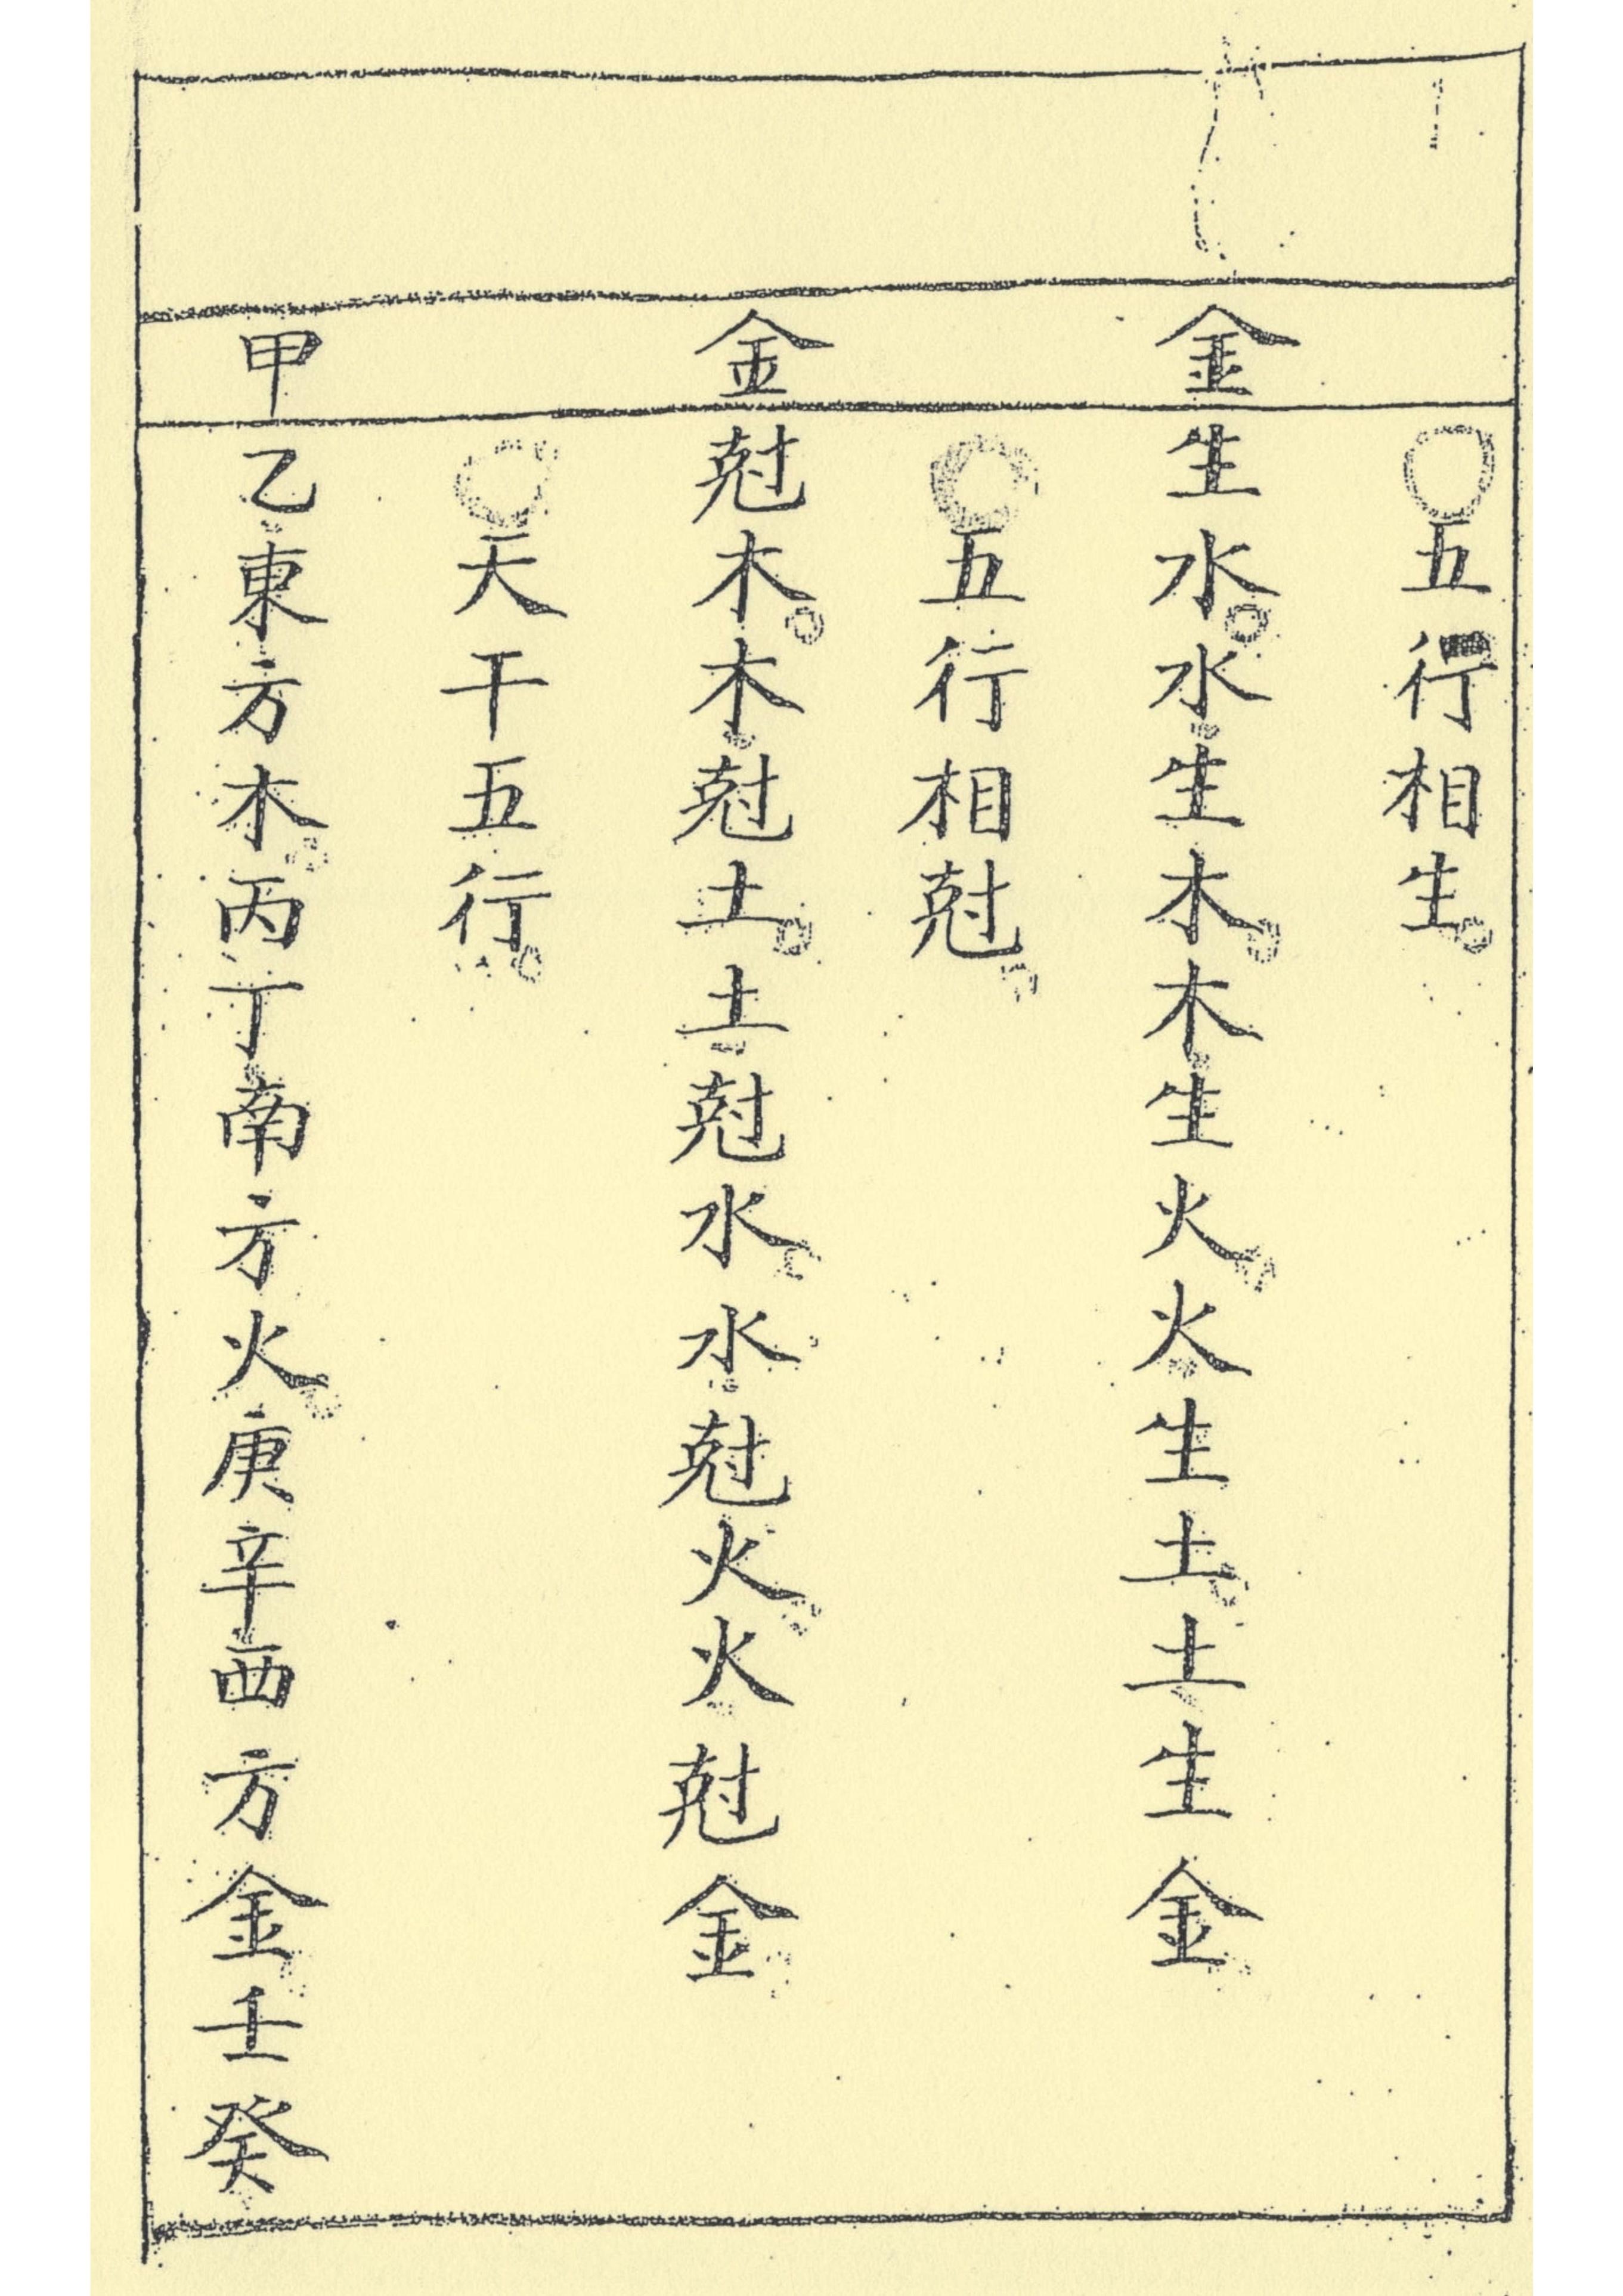 〇五行相生
金生水水生木木生火火生土土生金
〇五行相尅
金尅木木尅土土尅水水尅火火尅金
〇天干五行
甲乙東方木丙丁南方火庚辛西方金壬癸